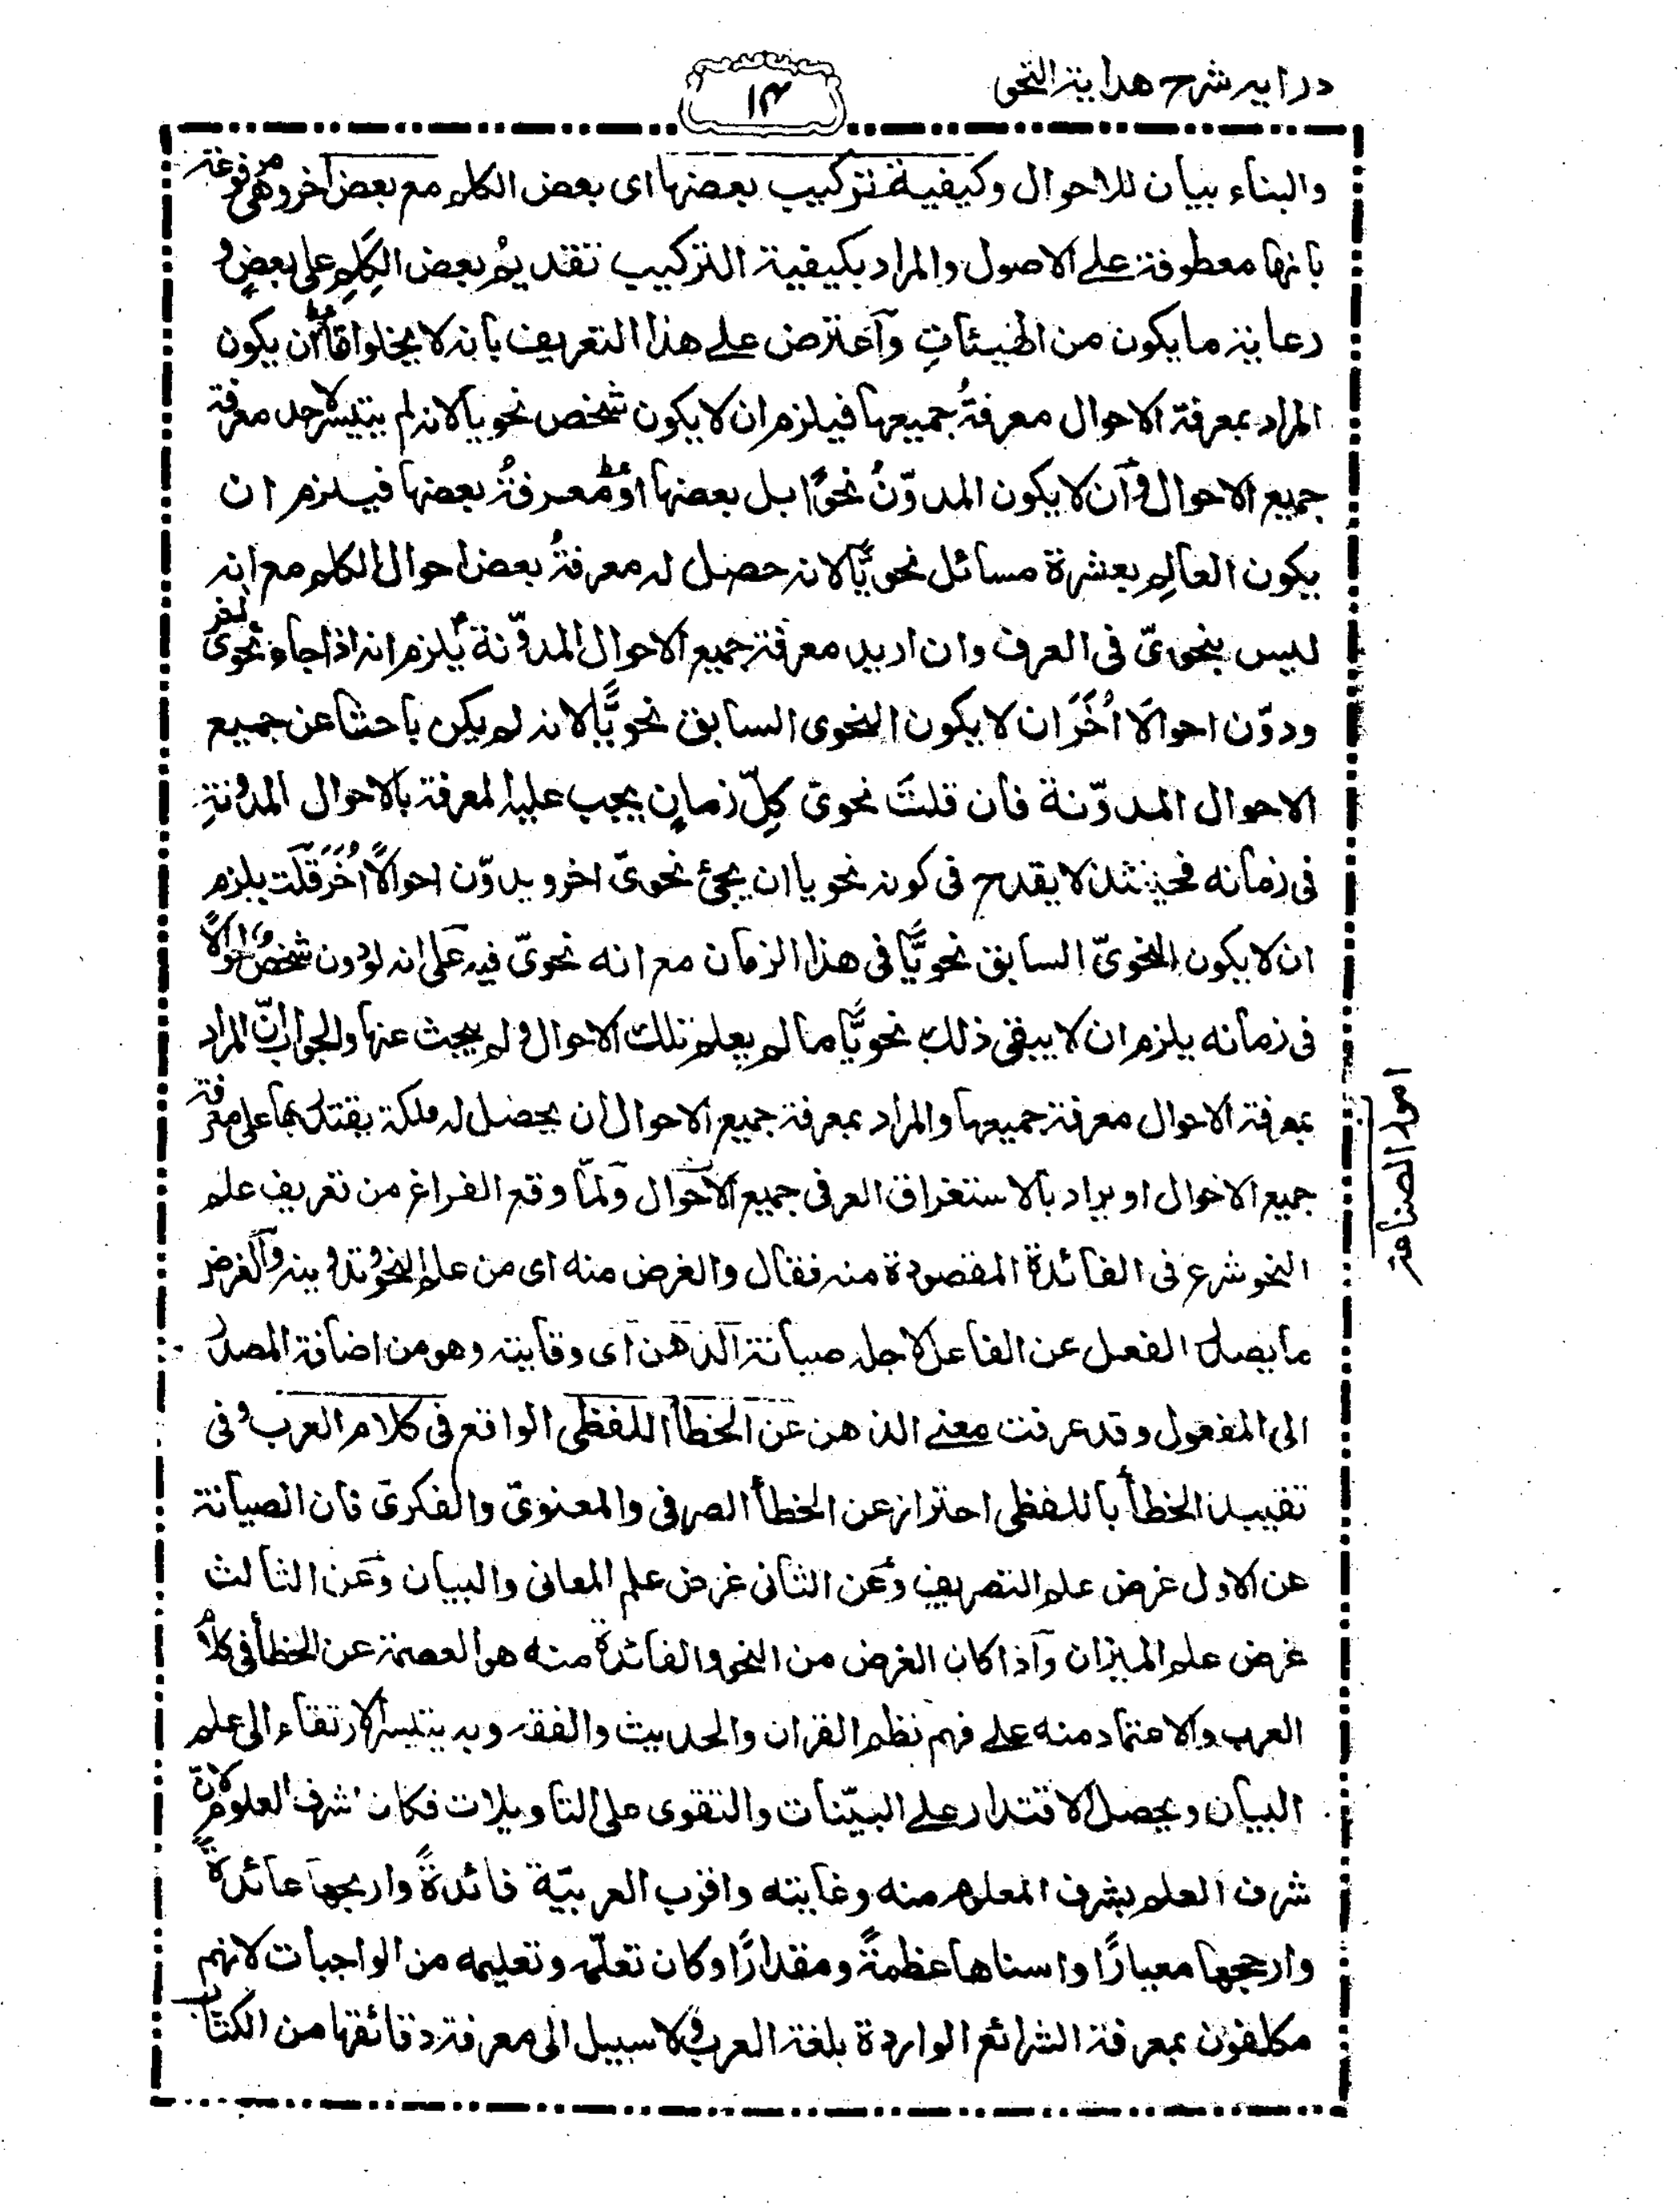 درايه شرح هداية النحو
١٤
والبناء بيان للاحوال وكيفية تركيب بعضها اى بعض الكلم مع بعض اخر وهى مرفوعة
بانها معطوفة على الاصول والمراد بكيفية التركيب تقديم بعض الكلم على بعضٍ و
رعاية ما يكون من الهيئاتِ واعترض على هذا التعريف بانه لا يخلوا اما ان يكون
المراد بمعرفة الاحوال معرفةُ جميعها فيلزم ان لا يكون شخص نحويا لانه لم يتيسر لاحد معرفة
جميع الاحوال وان لا يكون المدوّنُ نحوًا بل بعضها او معرفةُ بعضها فيلزم ان
يكون العالِم بعشرة مسائل نحويًّا لانه حصل له معرفةُ بعض احوال الكلم مع انه
ليس بنحوىّ فى العرف وان اريد معرفة جميع الاحوال المدوّنة يلزم انه اذا جاء نحوى اخر
ودوّن احوالًا اُخَرَ ان لا يكون النحوى السابق نحويًّا لانه لم يكن باحثا عن جميع
الاحوال المدوّنة فان قلتَ نحوىّ كلِّ زمانٍ يجب عليه المعرفة بالاحوال المدونةِ
فى زمانه فحينئذ لا يقدح فى كونه نحويا ان يجئ نحوىّ اخر ويدوّن احوالًا اُخَرَ قلت يلزم
ان لا يكون النحوىّ السابق نحويًّا فى هذا الزمان مع انه نحوىّ فيه على انه لو دون شخصٌ احوالًا
فى زمانه يلزم ان لا يبقى ذلك نحويًّا ما لم يعلم تلك الاحوال ولم يبحث عنها والجواب انّ المراد
بمعرفة الاحوال معرفة جميعها والمراد بمعرفة جميع الاحوال ان يحصل له ملكة يقتدر بها على معرفة
جميع الاحوال او يراد بالاستغراق العرفى جميع الاحوال ولمّا وقع الفراغ من تعريف علم
النحو شرع فى الفائدة المقصودة منه فقال والغرض منه اى من علم النحو وتدوينه والغرض
ما يصدر الفعل عن الفاعل لاجله صيانة الذهن اى وقايته وهو من اضافة المصدر
الى المفعول وقد عرفت معنى الذهن عن الخطأ اللفظى الواقع فى كلام العرب وفى
تقييد الخطأ باللفظى احتراز عن الخطأ الصرفى والمعنوىّ والفكرىّ فان الصيانة
عن الاول غرض علم التصريف وعن الثانى غرض علم المعانى والبيان وعن الثالث
غرض علم الميزان واذا كان الغرض من النحو والفائدة منه هو العصمة عن الخطأ فى كلام
العرب والاعتماد منه على فهم نظم القران والحديث والفقه وبه يتيسر الارتقاء الى علم
البيان ويحصل الاقتدار على البيّنات والتقوى على التاويلات فكان اشرف العلوم لانّ
شرف العلم بشرف المعلوم منه وغايته واقرب العربيّة فائدةً واربحها عائدةً
وارجحها معيارًا واسناها عظمةً ومقدارًا وكان تعلّمه وتعليمه من الواجبات لانهم
مكلفون بمعرفة الشرائع الواردة بلغة العرب ولا سبيل الى معرفة دقائقها من الكتاب